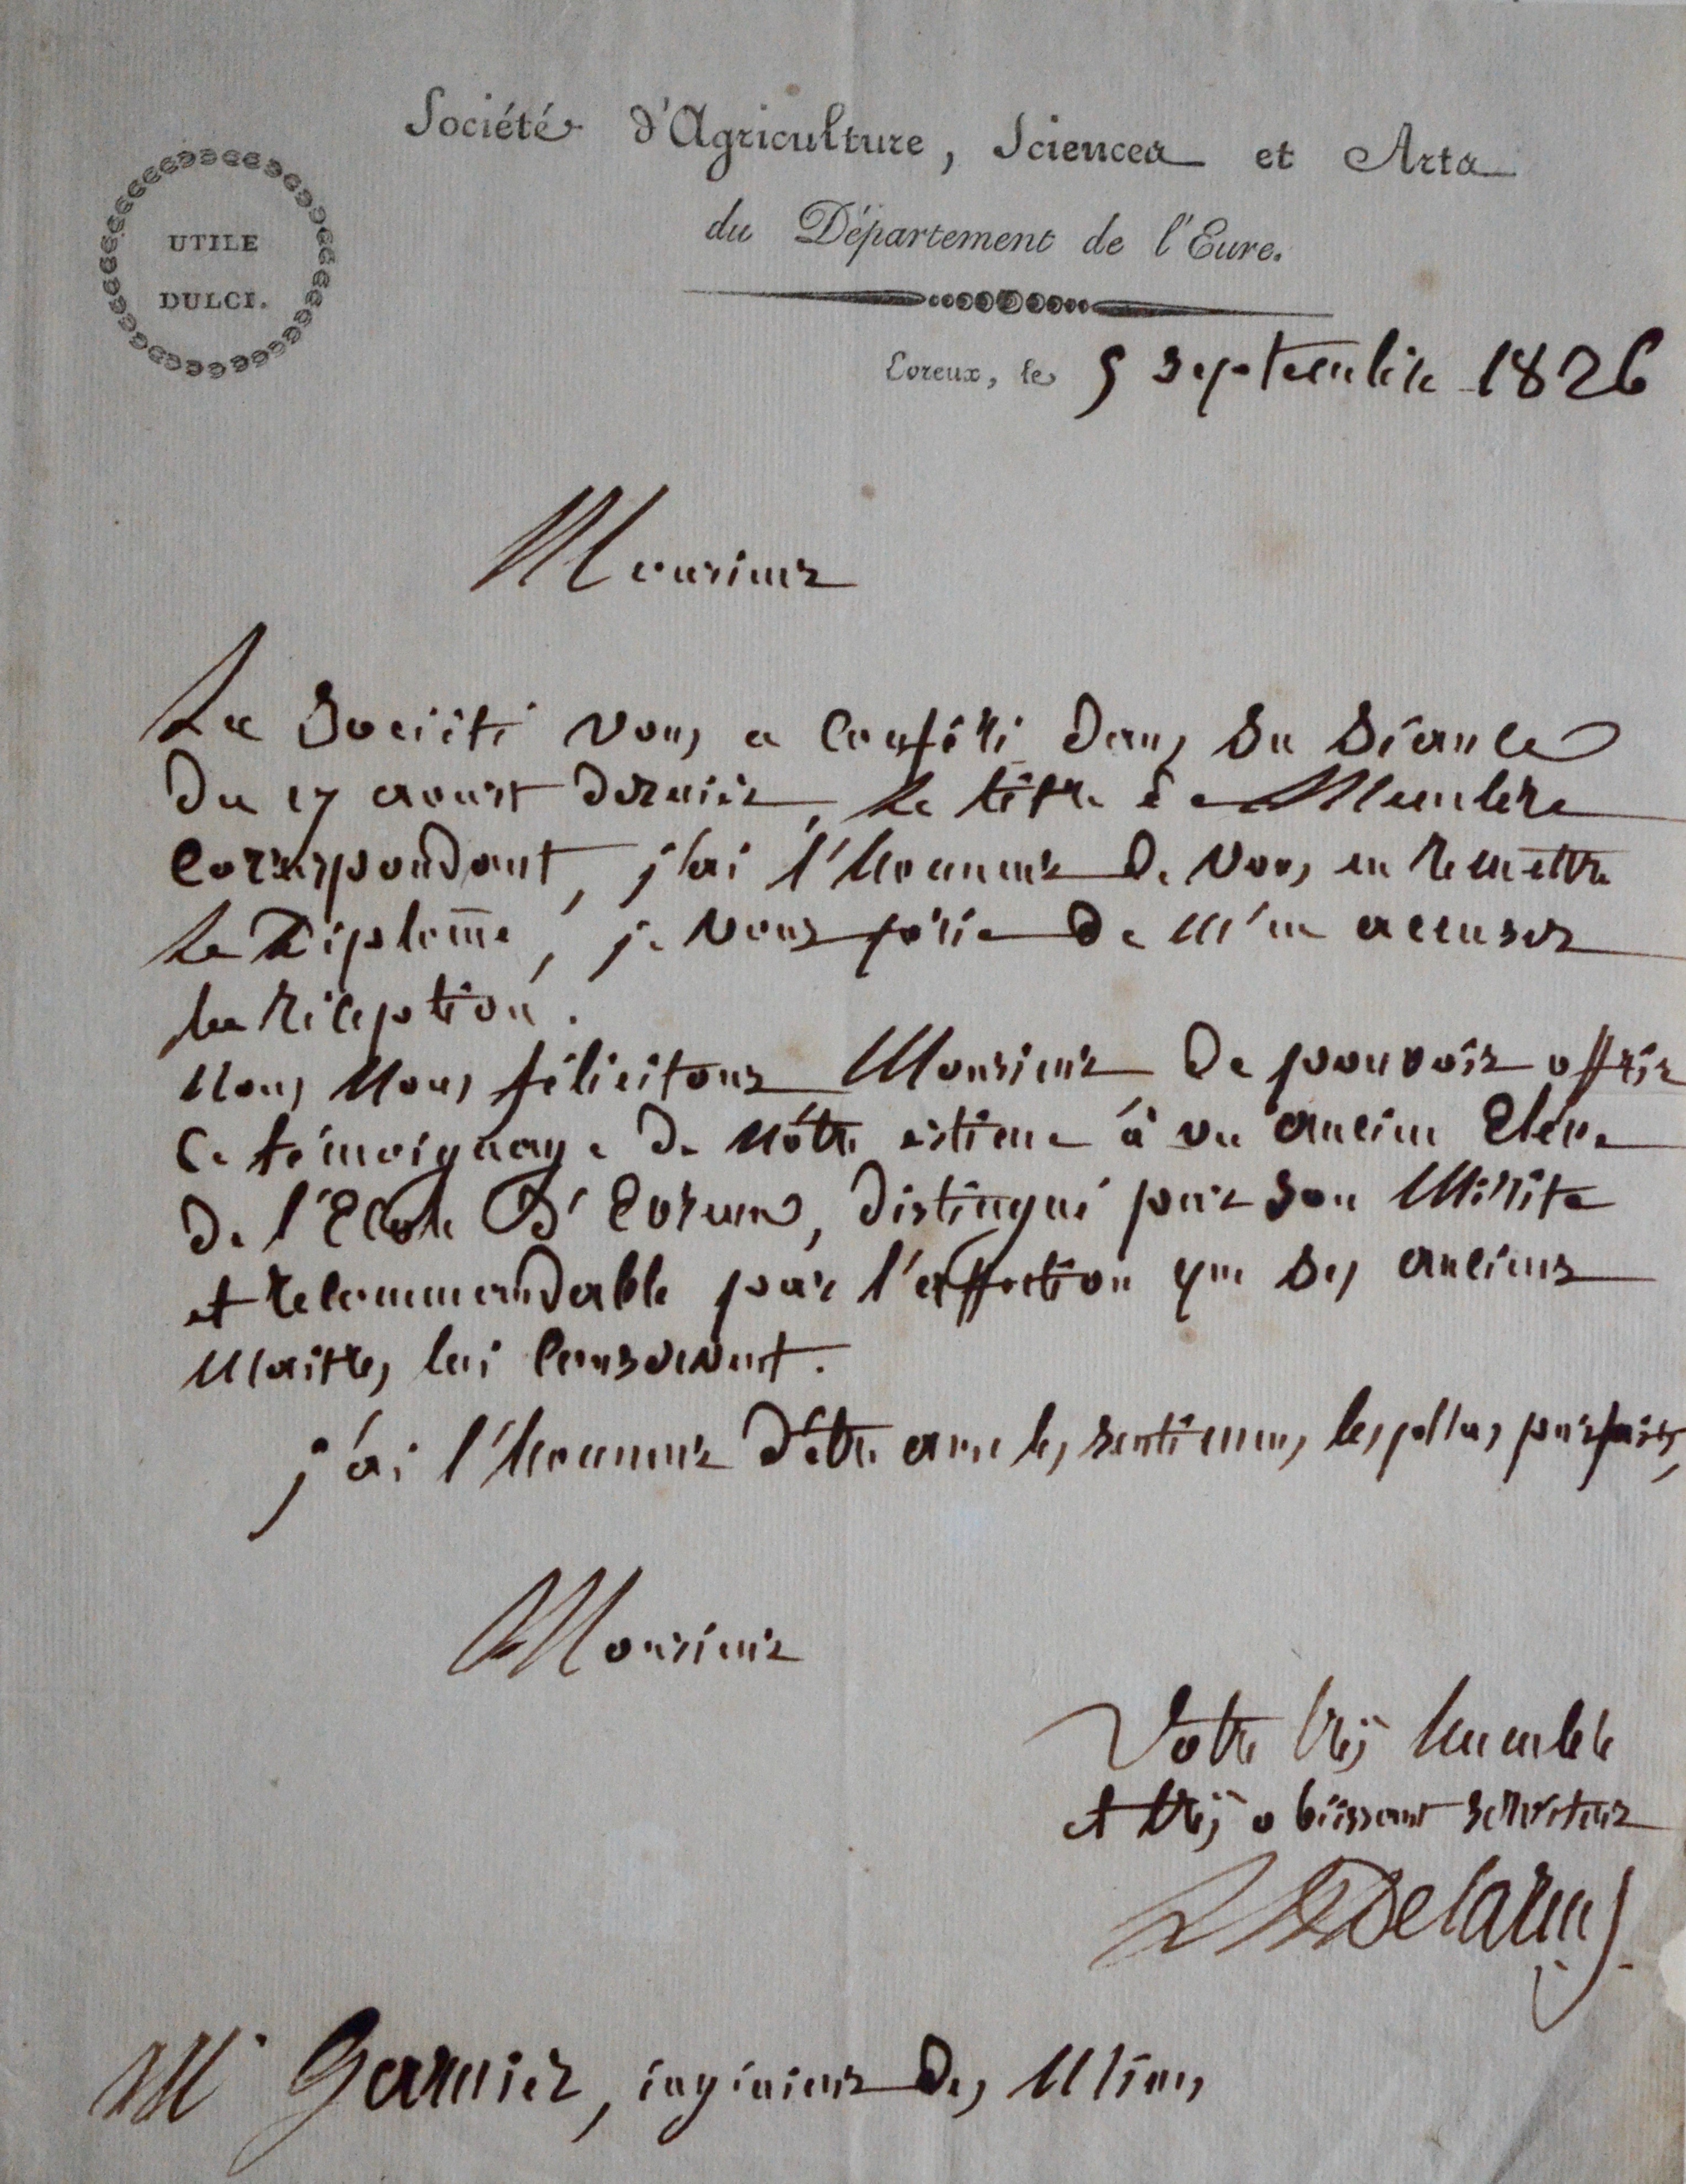 Société d'Agriculture, Sciences et Arts
du Département de l'Eure.
UTILE
DULCI.
Evreux, le 5 septembre 1826
Monsieur
La Société vous a conféré dans sa séance
du 17 aoust dernier, le titre de Membre
Correspondant, j'ai l'honneur de vous en remettre
le Diplôme, je vous prie de m'en accuser
la réception.
Nous nous félicitons Monsieur de pouvoir offrir
ce témoignage de nôtre estime à un ancien Elève
de l'Ecole D'Evreux, distingué par son Mérite
et recommandable par l'affection que ses anciens
Maitres lui conservent.
j'ai l'honneur d'être avec les sentimens les plus parfaits,
Monsieur
Votre très humble
et très obéissant serviteur
Delarue
Mr Garnier, ingénieur des Mines